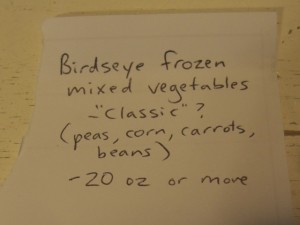 Birdseye frozen
mixed vegetables
-"Classic"?
(peas, corn, carrots,
beans)
-20 oz or more